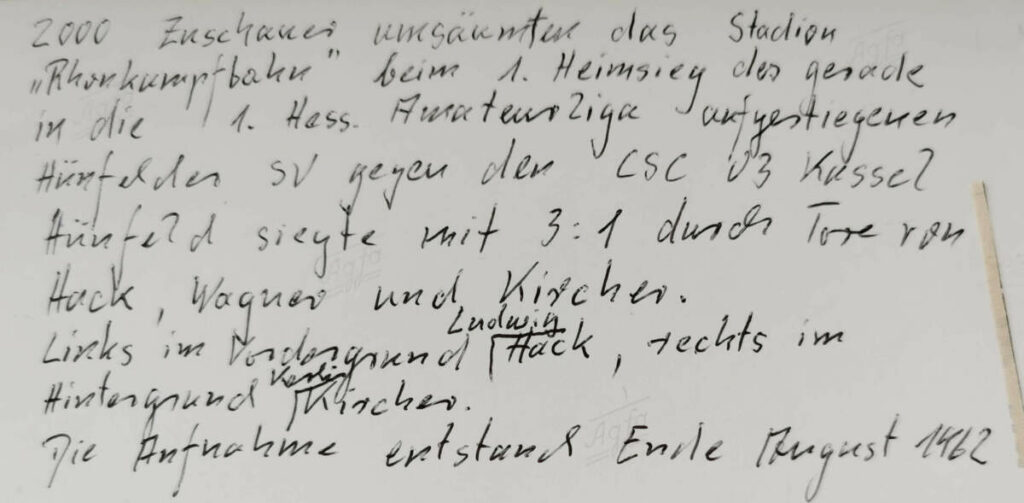 2000 Zuschauer umsäumten das Stadion
„Rhönkampfbahn" beim 1. Heimsieg des gerade
in die 1. Hess. Amateurliga aufgestiegenen
Hünfelder SV gegen den CSC 03 Kassel
Hünfeld siegte mit 3:1 durch Tore von
Hack, Wagner und Kircher.
Links im Vordergrund Ludwig Hack, rechts im
Hintergrund Kircher.
Die Aufnahme entstand Ende August 1962